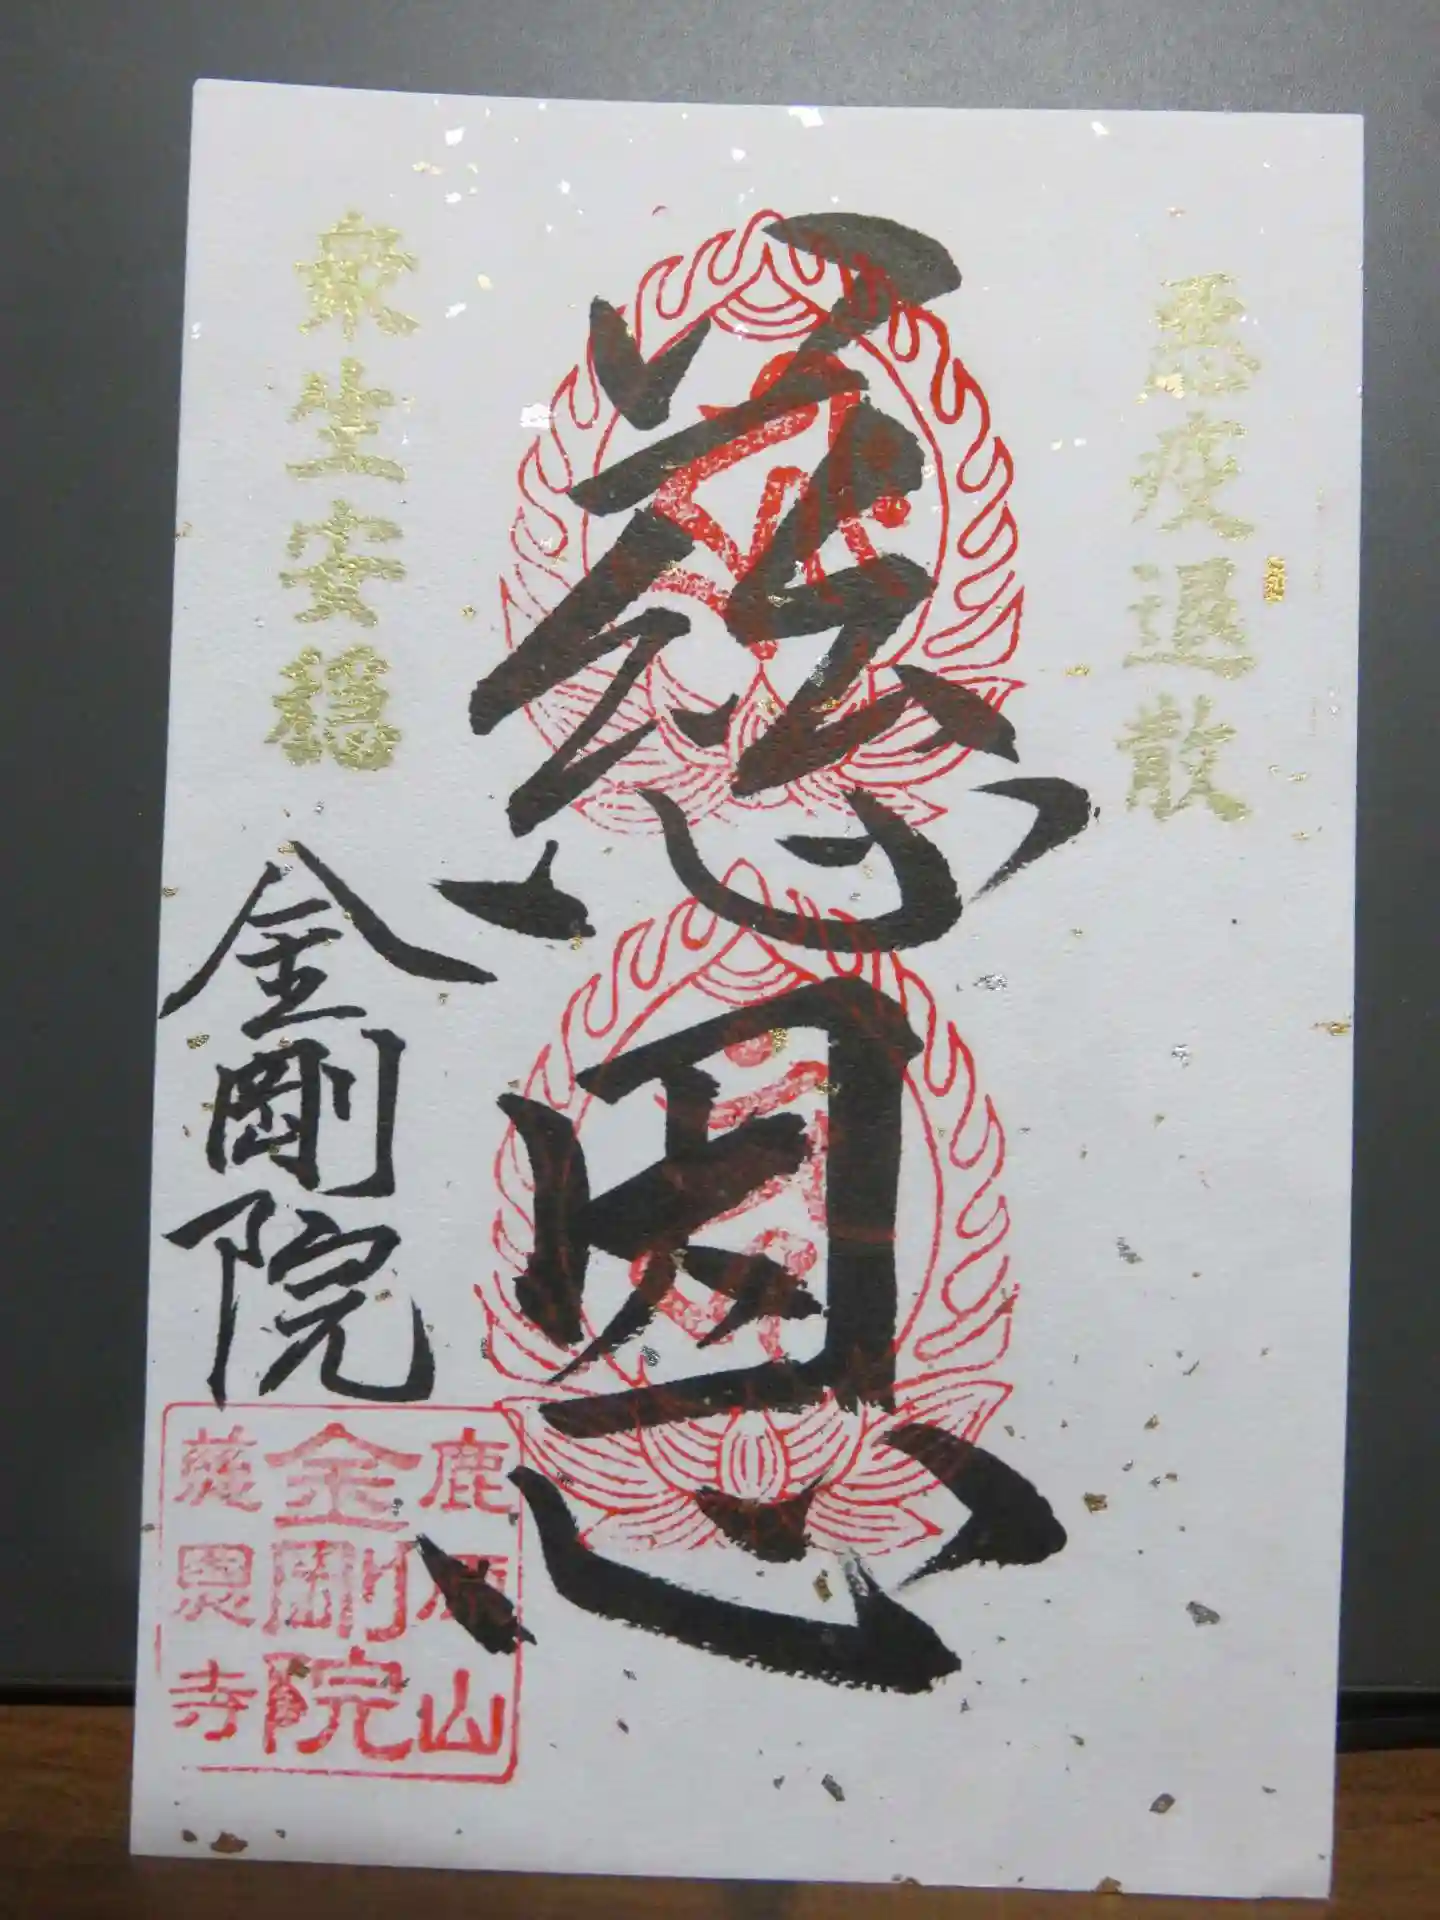 悪疫退散
慈恩
衆生安穏
金剛院
鹿原山
金剛院
慈恩寺